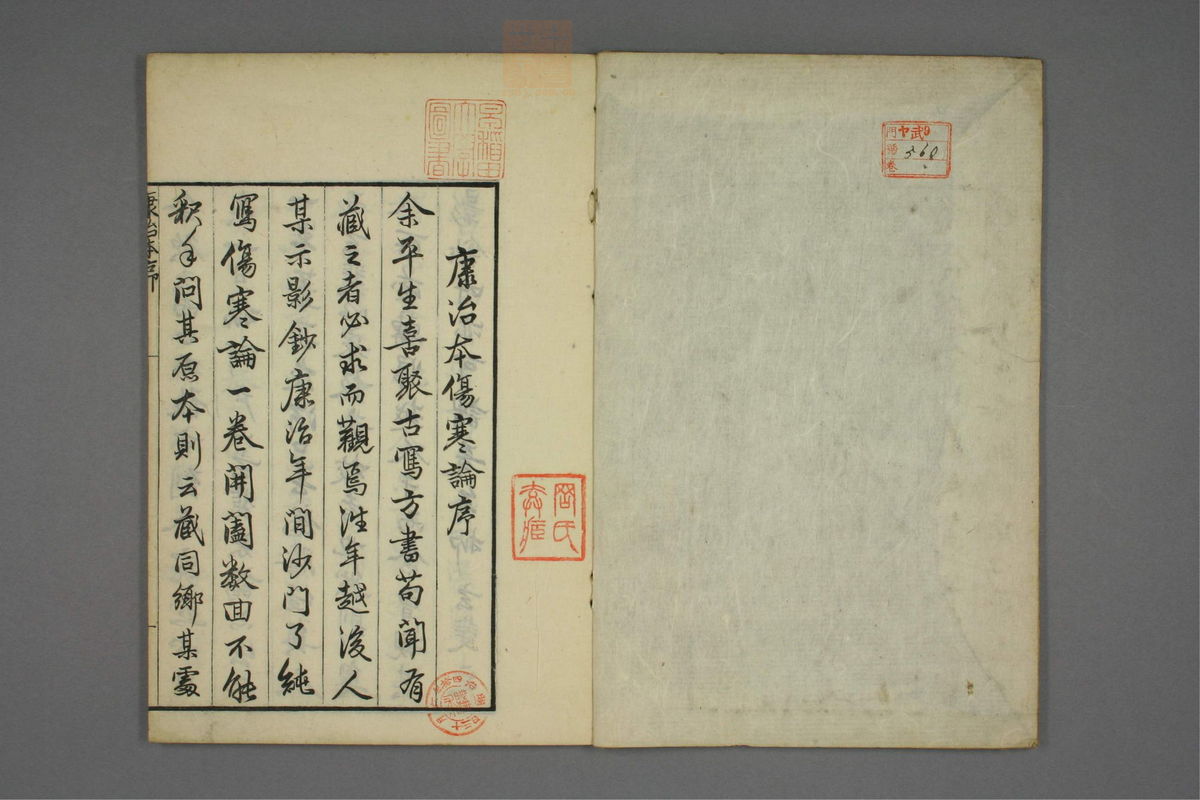 康治本傷寒論序
余平生喜聚古寫方書苟聞有
藏之者必求而觀焉往年越後人
某示影鈔康治年間沙門了純
寫傷寒論一卷開闔数回不能
釈手問其原本則云藏同鄉某家
康治本序
一
門 ヤ9
號 568
卷